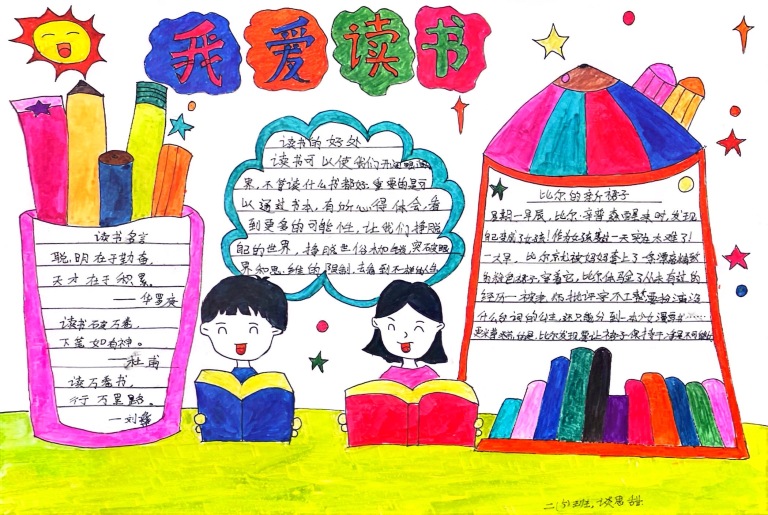 我爱读书
读书名言
聪明在于勤奋,
天才在于积累。
——华罗庚
读书破万卷,
下笔如有神。
——杜甫
读万卷书,
行万里路。
——刘彝
读书的好处
读书可以使我们开阔眼
界,不管读什么书都好,重要的是可
以通过书本,有所心得体会,看
到更多的可能性,让我们挣脱
的世界,挣脱世俗枷
界和思维的限制,去看到不一样的
比尔的新裙子
星期一早晨,比尔·辛普森醒来时,发现
自己变成了女孩!作为女孩的一天实在太难了!
一大早,比尔就被妈妈套上了一条漂亮精致
的粉色裙子,穿着它,比尔体验了从未有过的
经历—被老师批评字不工整
什么台词的公主,还只能分到一本少女漫画书……
更
二(5)班,谈思甜